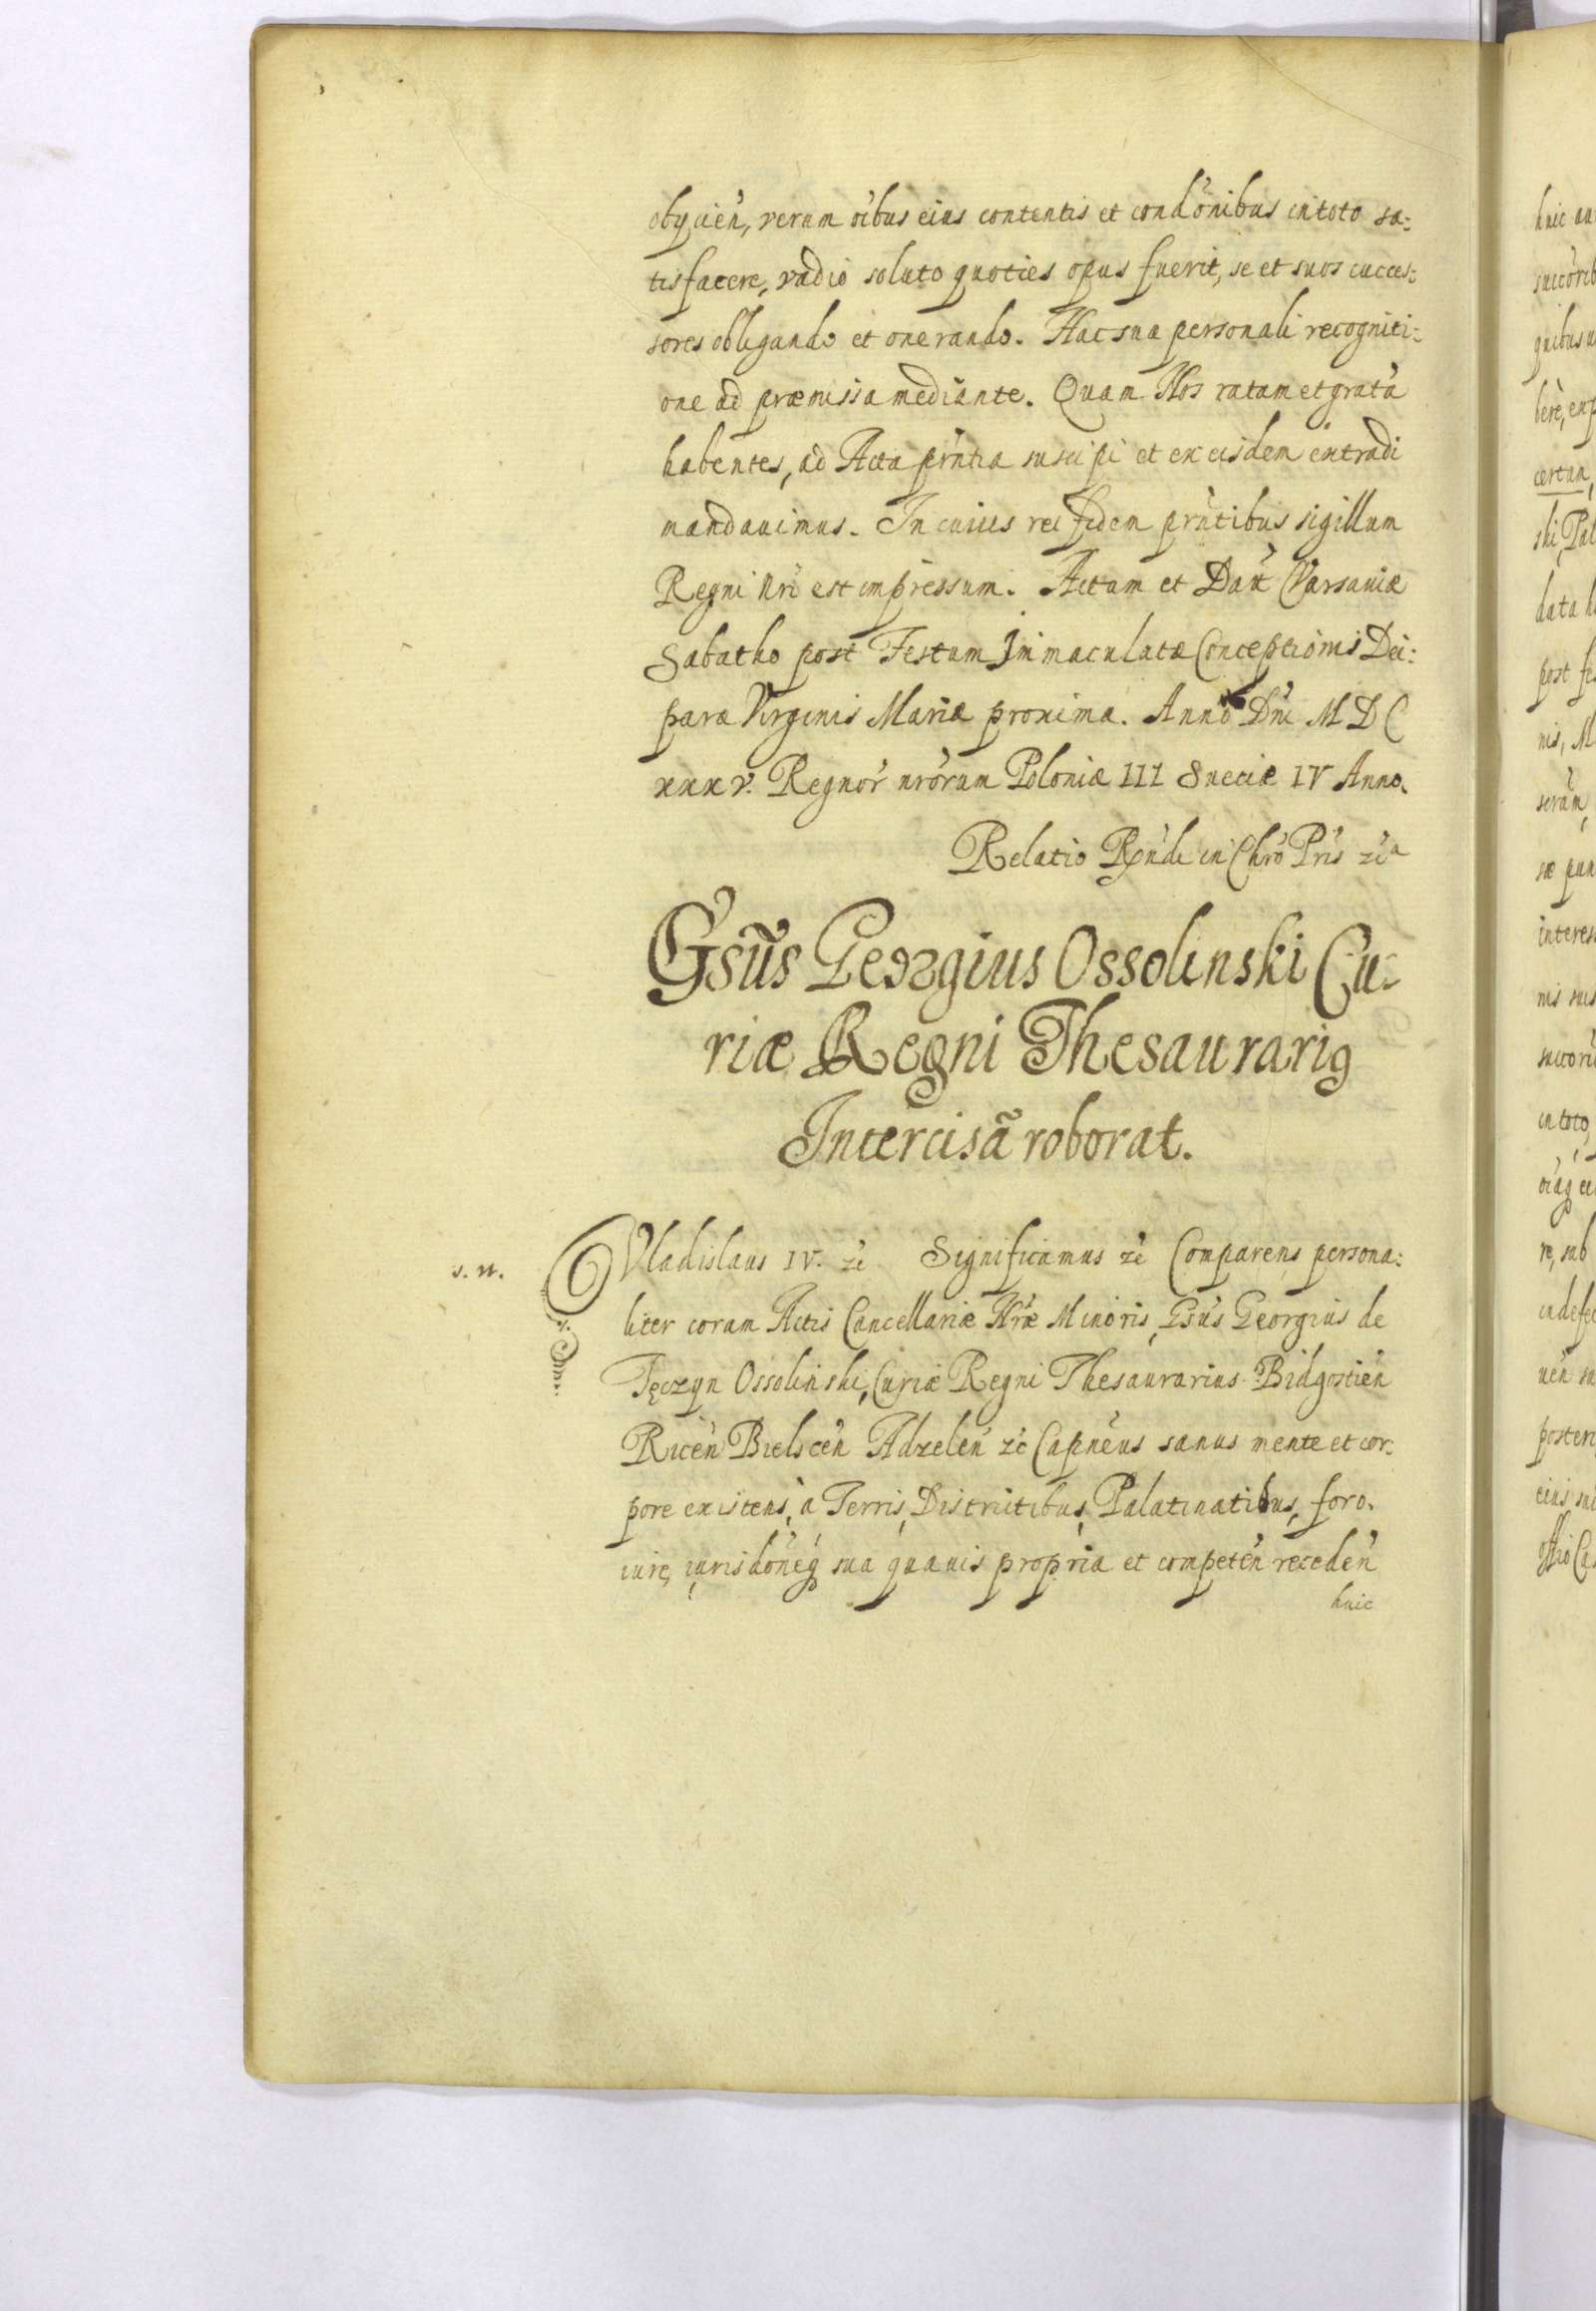 obijcień, verum oĩbus eius contentis et condõnibus in toto sa:
tisfacere, vadio soluto quoties opus fuerit, se et suos succes:
sores obligando et onerando. Hac sua personali recogniti:
one ad præmissa mediante. Quam Nos ratam et gratã
habentes, ad Acta prñtia suscipi et ex eisdem extradi
mandauimus. In cuius rei fidem prñtibus sigillum
Regni nrĩ est impressum. Actum et Dat̃ Varsauiæ
Sabatho post Festum Immaculatæ Conceptionis Dei:
paræ Virginis Mariæ proxima. Anno Dñi MDC
xxxv. Regnor̃ nrõrum Poloniæ III Sueciæ IV Anno.
Relatio Rñdi in Chrõ Prĩs zc̃a
Gsũs Georgius Ossolinski Cu:
riæ Regni Thesaurariꝯ
Intercisã roborat.
s. n.
Vladislaus IV. zc̃ Significamus zc̃ Comparens persona:
liter coram Actis Cancellariæ Nræ Minoris, Gsũs Georgius de
Tęczyn Ossolinski, Curiæ Regni Thesaurarius Bidgostień
Ricẽn Bielscẽn Adzelẽn zc̃ Capnẽus sanus mente et cor:
pore existens, à Terris, Districtibus, Palatinatibus, foro,
iure, iurisdõneq́ sua quauis propria et competẽn recedẽn
huic